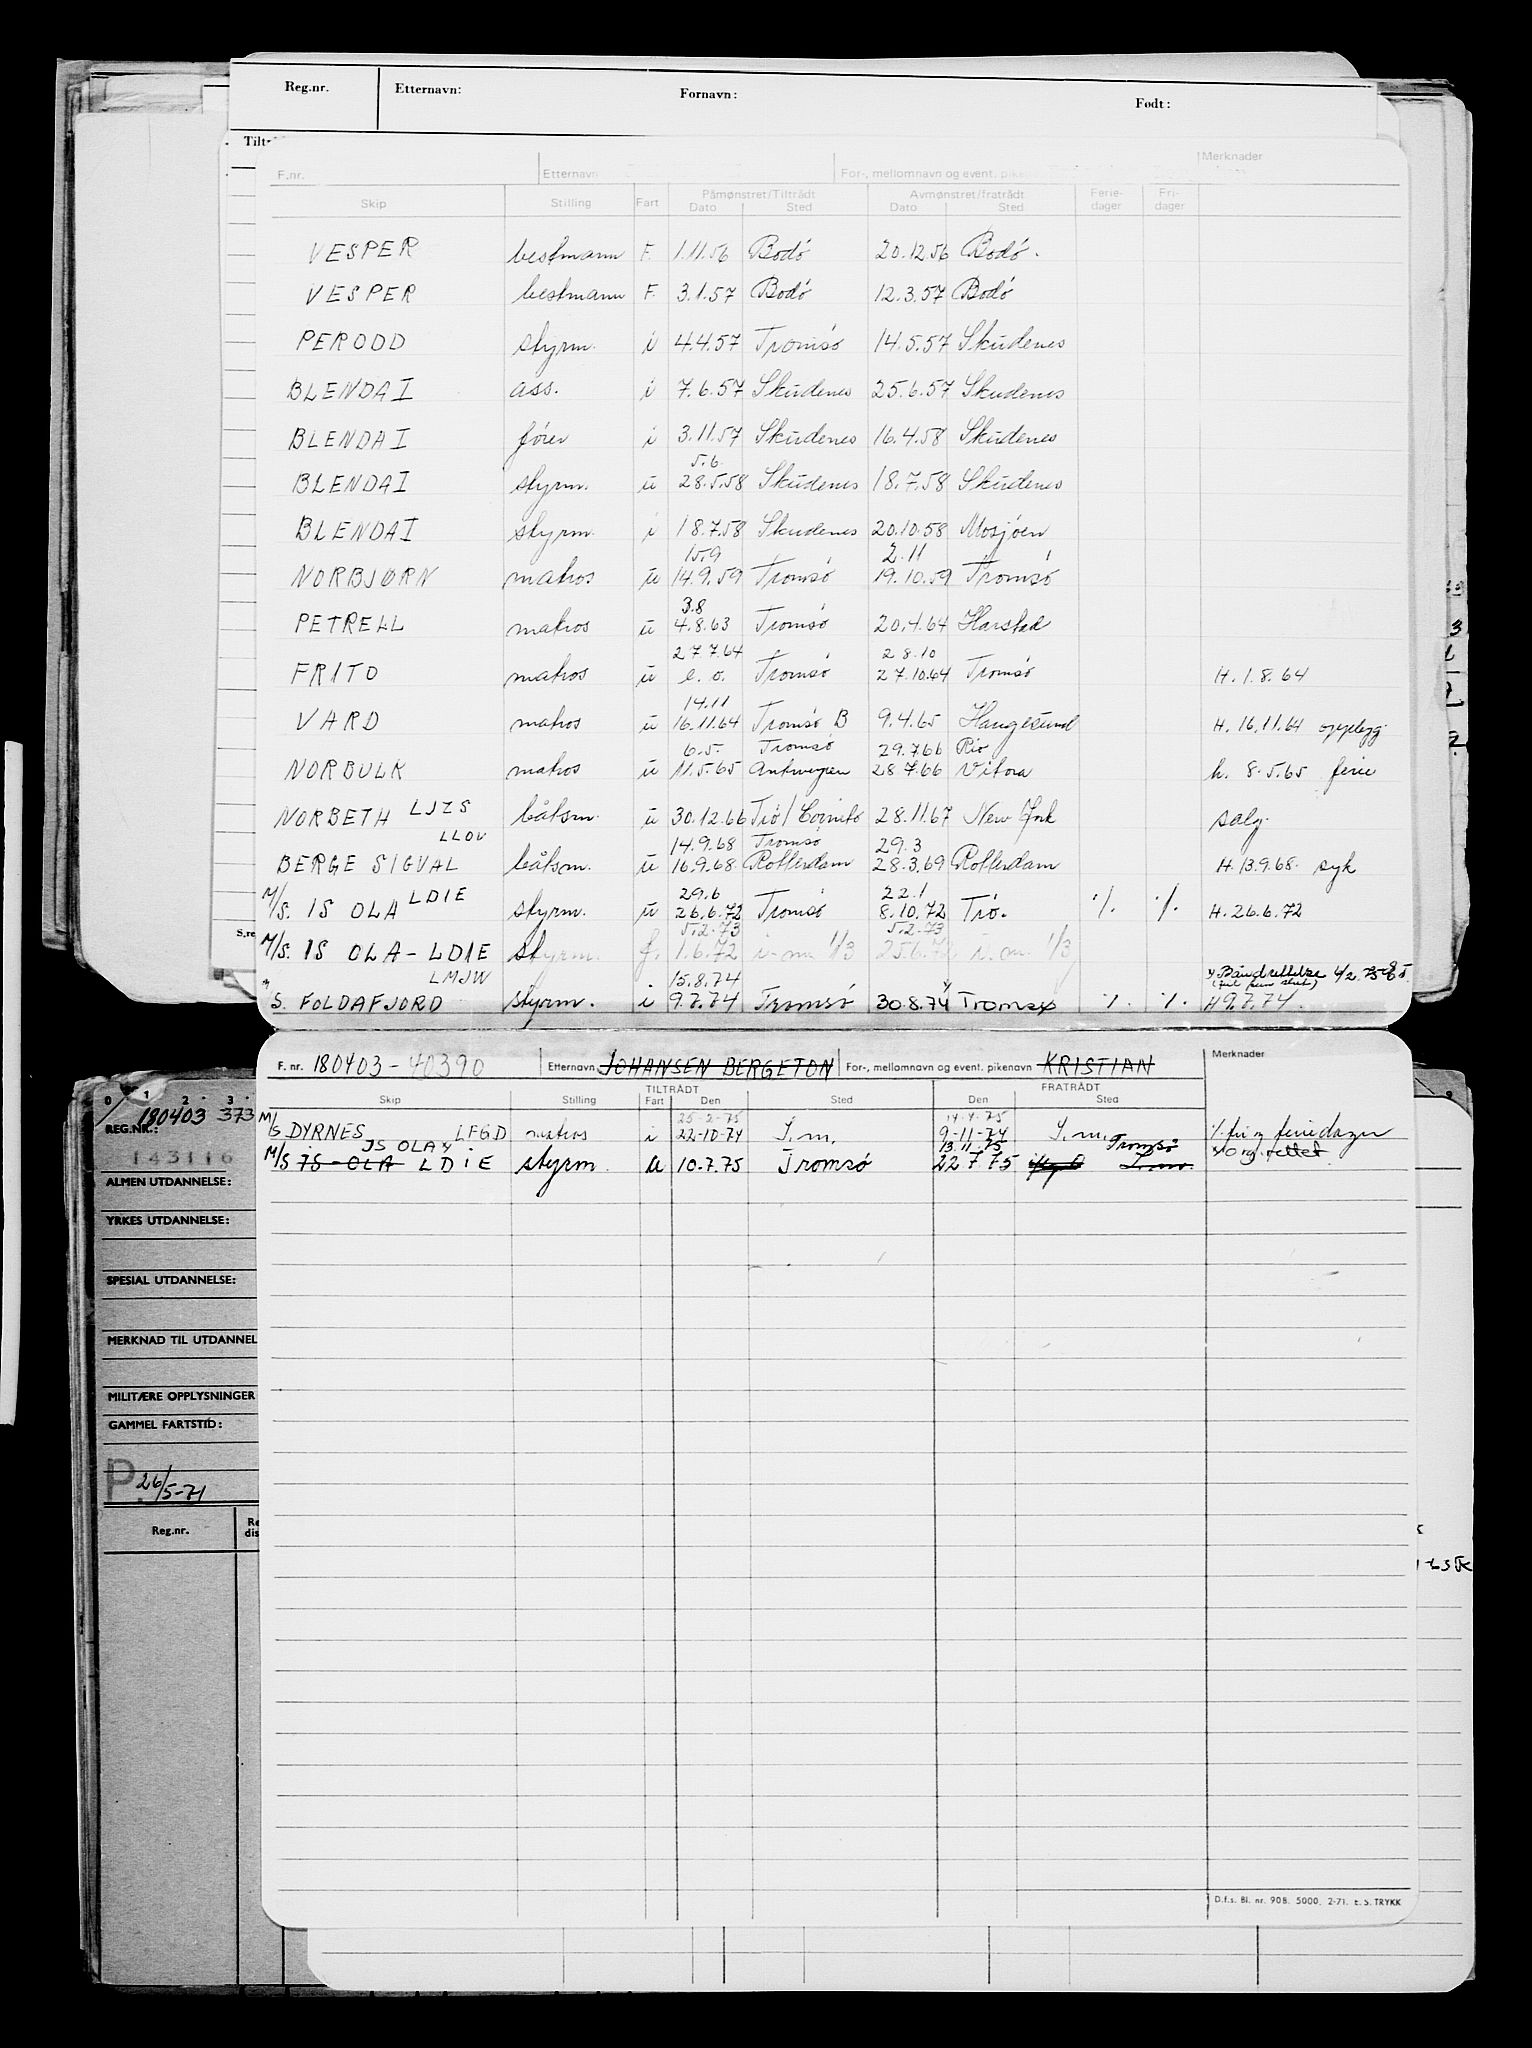 Reg.nr. Etternavn: Fornavn: Født:
F.nr. Etternavn For-, mellomnavn og event. Merknader
Skip Stilling Fart Påmønstret/Tiltrådt Dato Sted Avmønstret/fratrådt Dato Sted Ferie-dager Fri-dager
VESPER bestmann F. 1.11.56 Bodö 20.12.56 Bodö.
VESPER bestmann F. 3.1.57 Bodö 12.3.57 Bodö
PERODD styrm. i 4.4.57 Tromsö 14.5.57 Skudenes
BLENDA I ass. i 7.6.57 Skudenes 25.6.57 Skudenes
BLENDA I förer i 3.11.57 Skudenes 16.4.58 Skudenes
5.6.
BLENDA I styrm. u 28.5.58 Skudenes 18.7.58 Skudenes
BLENDA I styrm. i 18.7.58 Skudenes 20.10.58 Mosjöen
15.9 2.11
NORBJØRN matros u 14.9.59 Tromsö 19.10.59 Tromsö
3.8
PETRELL matros u 4.8.63 Tromsö 20.4.64 Harstad
27.7.64 28.10
FRITO matros u e.o. Tromsö 27.10.64 Tromsö H. 1.8.64
14.11
VARD matros u 16.11.64 Tromsö B 9.4.65 Haugesund H. 16.11.64 opplegg
6.5. Tromsö 29.7.66 Rio
NORBULK matros u 11.5.65 Antwerpen 28.7.66 Vitoria h. 8.5.65 ferie
NORBETH LJZS båtsm. u 30.12.66 28.11.67 New York salg.
LLOV 14.9.68 Tromsö 29.3
BERGE SIGVAL båtsm. u 16.9.68 Rotterdam 28.3.69 Rotterdam H. 13.9.68. syk
29.6 22.1
M/S. IS OLA LDIE styrm. u 26.6.72 Tromsö 8.10.72 Trö. ./. ./. H. 26.6.72
5.2.73 5.2.73
M/S. IS OLA - LDIE styrm. f. 1.6.72 i.m. 1/3 25.6.72 i.m. 1/3
LMJW 15.8.74
S. FOLDAFJORD styrm. i 9.7.74 Tromsö 30.8.74 Tromsø ./. ./. H 9.7.74.
F. nr. 180403-40390 Etternavn JOHANSEN BERGETON For-, mellomnavn og event. pikenavn KRISTIAN Merknader
TILTRÅDT FRATRÅDT
Skip Stilling Fart Den Sted Den Sted
25-2-75 14.4.75
M/S DYRNES LFGD matros i 22-10-74 I.m. 9-11-74 I.m. ./. fri og feriedager
IS OLAY 13.11.75 Tromsö
M/S IS-OLA LDIE styrm. u 10.7.75 Tromsö 22.7.75
D.f.s. Bl. nr. 908. 5000. 2-71. E.S. TRYKK
0 1 2 3
180403 373
REG.NR.:
143116
ALMEN UTDANNELSE:
YRKES UTDANNELSE:
SPESIAL UTDANNELSE:
MERKNAD TIL UTDANNEL
MILITÆRE OPPLYSNINGER
GAMMEL FARTSTID:
P. 26/5-71
Reg.nr. Re dis